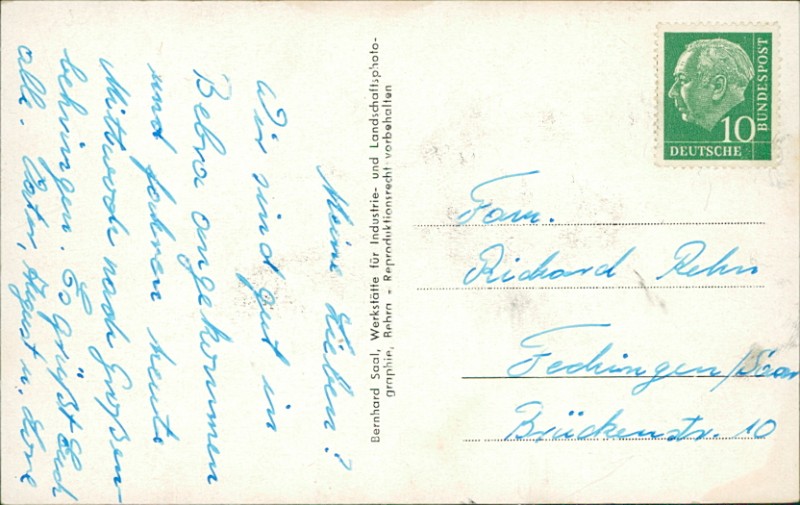 Meine Lieben!
Wir sind gut in
Bebra angekommen
und fahren heute
Mittwoch nach Großen-
behringen. Es grüßt Euch
alle. Vater, August u. Dore
Bernhard Saal, Werkstätte für Industrie- und Landschaftsphoto-
graphie, Bebra - Reproduktionsrecht vorbehalten
10
DEUTSCHE
BUNDESPOST
Fam.
Richard Rehn
Fechingen/Saar
Brückenstr. 10